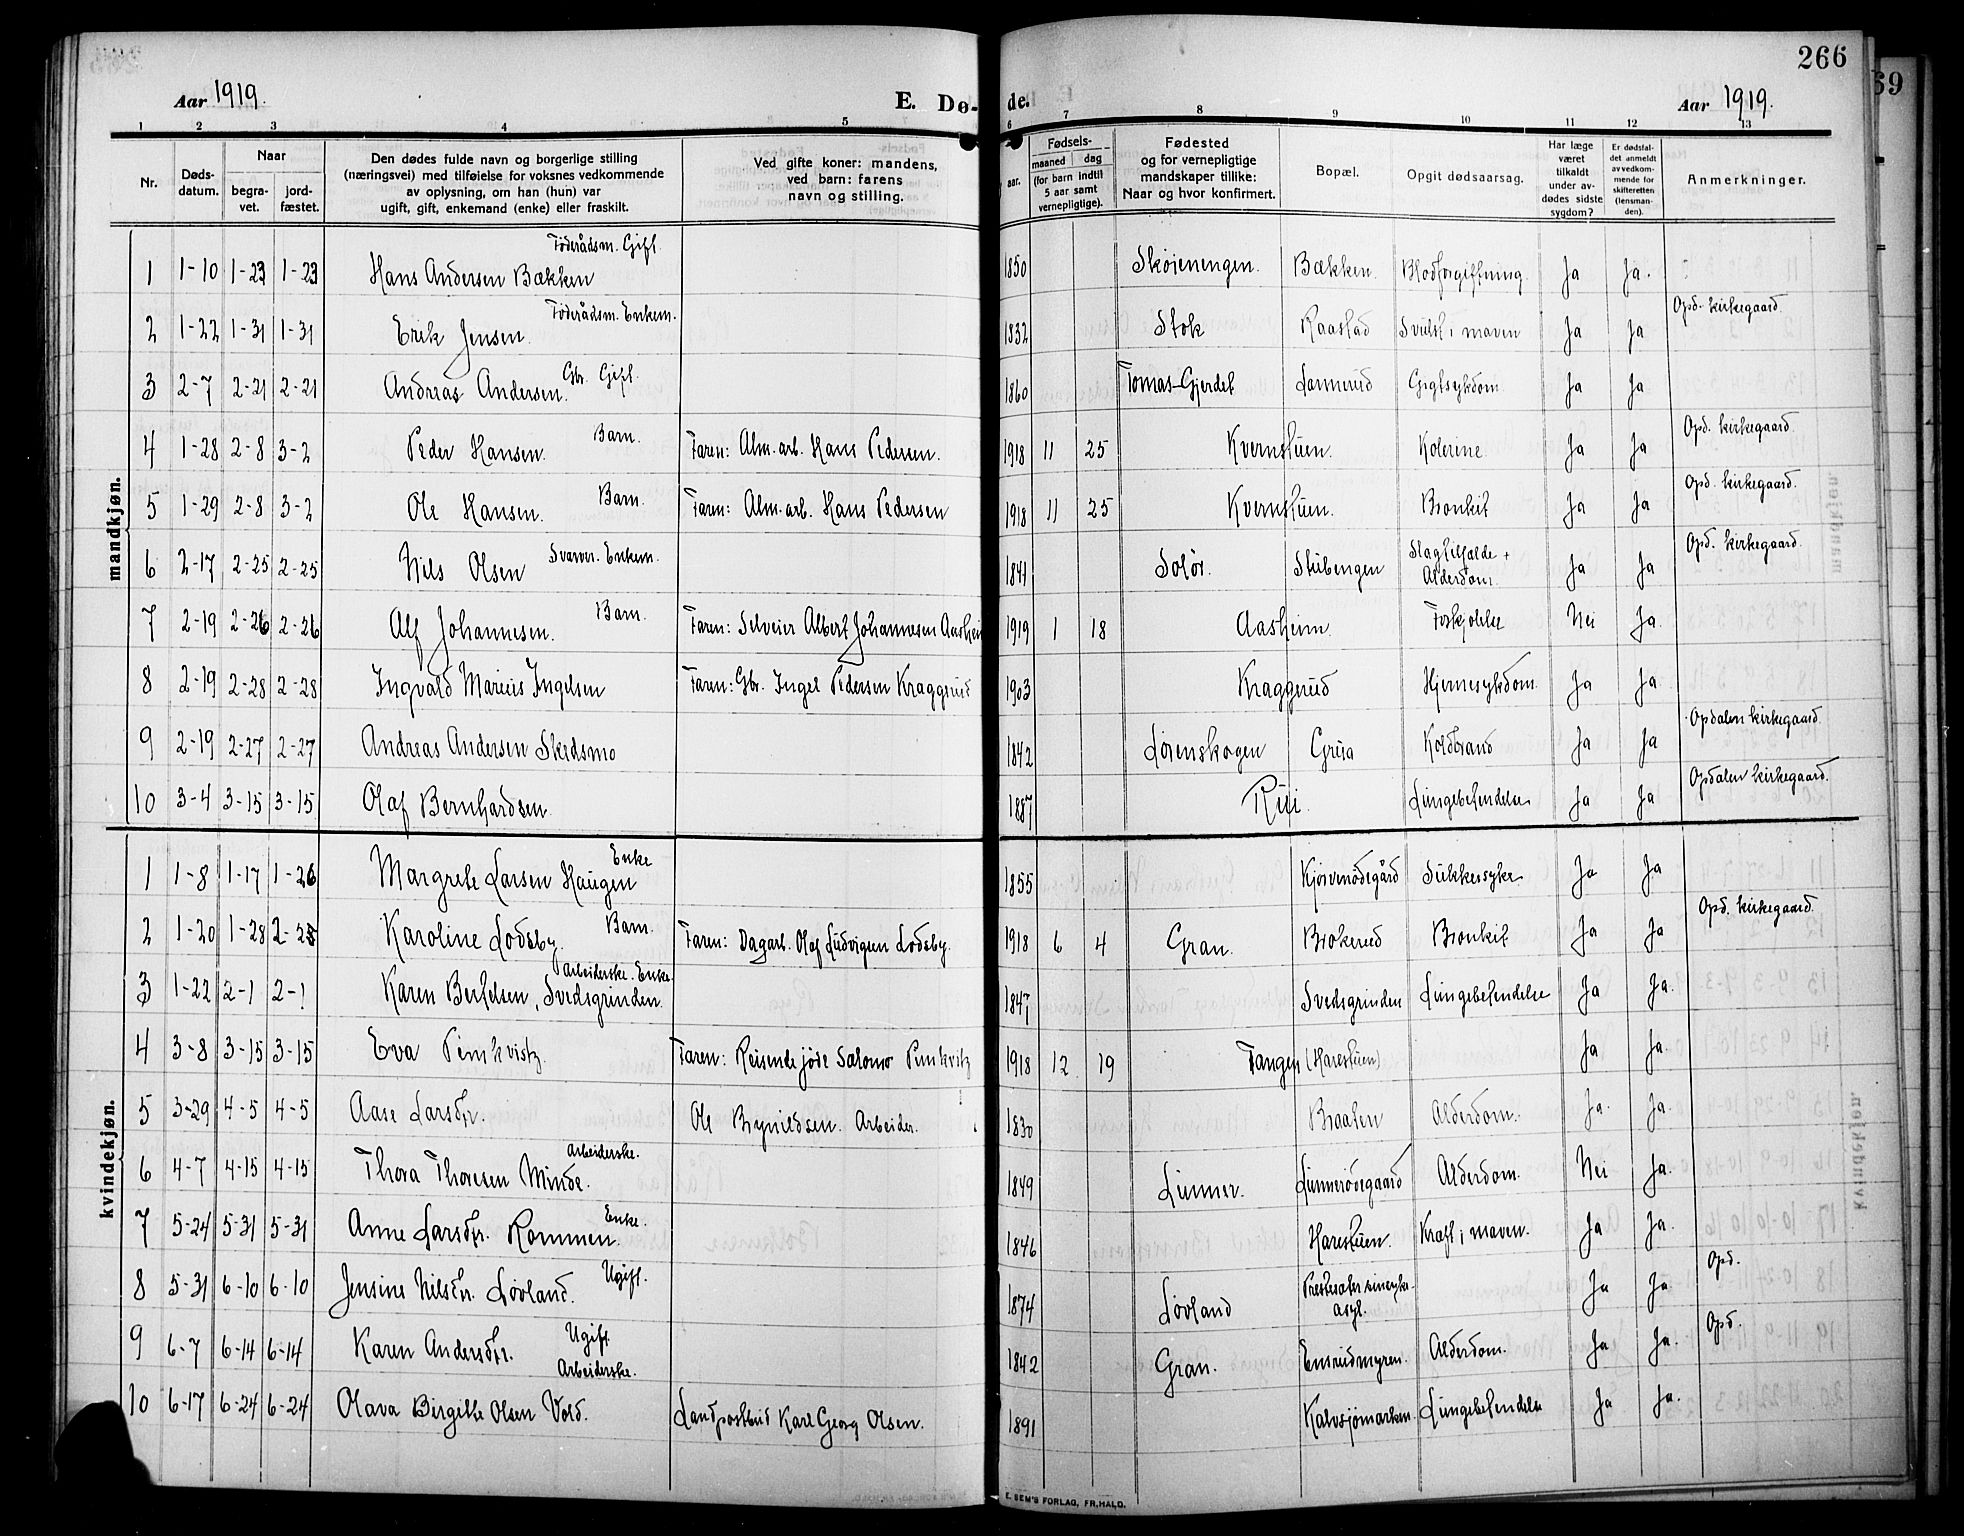 266
Aar 1919.
E. Dø-
de.
Aar 1919.
1 2 3 4 5 6 7 8 9 10 11 12 13
Nr.
Døds-
datum.
Naar
begra-
vet.
jord-
fæstet.
Den dødes fulde navn og borgerlige stilling
(næringsvei) med tilføielse for voksnes vedkommende
av oplysning, om han (hun) var
ugift, gift, enkemand (enke) eller fraskilt.
Ved gifte koner: mandens,
ved barn: farens
navn og stilling.
aar.
Fødsels-
maaned dag
(for barn indtil
5 aar samt
vernepligtige).
Fødested
og for vernepligtige
mandskaper tillike:
Naar og hvor konfirmert.
Bopæl.
Opgit dødsaarsag.
Har læge
været
tilkaldt
under av-
dødes sidste
sygdom?
Er dødsfal-
det anmeldt
av vedkom-
mende for
skifteretten
(lensman-
den).
Anmerkninger.
mandkjøn.
Føderådsm. Gift.
1 1-10 1-23 1-23 Hans Andersen Bækken 1850 Skøienengen. Bækken. Blodforgiftning. Ja Ja.
Føderådsm. Enkem. Opd. kirkegaard.
2 1-22 1-31 1-31 Erik Jensen. 1832 Stok Raastad Svulst i maven Ja Ja
Gbr. Gift.
3 2-7 2-21 2-21 Andreas Andersen. 1860 Tomas-Gjerdet Lannerud Gigtsykdom. Ja Ja
Barn. Opd. kirkegaard.
4 1-28 2-8 3-2 Peder Hansen. Faren: Alm. arb. Hans Pedersen. 1918 11 25 Kvernstuen. Kolerine Ja Ja
Barn. Opd. kirkegaard.
5 1-29 2-8 3-2 Ole Hansen. Faren: Alm. arb. Hans Pedersen 1918 11 25 Kvernstuen. Bronkit Ja Ja
Svarver. Enkem. Slagtilfælde + Opd. kirkegaard.
6 2-17 2-25 2-25 Nils Olsen 1841 Solør. Stubengen Alderdom. Ja Ja
Barn.
7 2-19 2-26 2-26 Alf Johannesen. Faren: Selveier Albert Johannesen Aasheim 1919 1 18 Aasheim. Forkjølelse Nei Ja.
8 2-19 2-28 2-28 Ingvald Marius Ingelsen Faren: Gbr. Ingel Pedersen Kraggerud 1903 Kraggerud Hjernesykdom. Ja Ja.
Opdalen kirkegaard.
9 2-19 2-27 2-27 Andreas Andersen Skedsmo 1842 Lørenskogen Grua Koldbrand Ja Ja
Opdalen kirkegaard.
10 3-4 3-15 3-15 Olaf Bernhardsen. 1887 Rusi. Lungebetendelse Ja Ja
kvindekjøn.
Enke
1 1-8 1-17 1-26 Margrete Larsen Haugen 1855 Kjørvenødegård Sukkersyke Ja Ja
Barn. Opd. kirkegaard.
2 1-20 1-28 2-23 Karoline Lodsby. Faren: Dagarb. Olaf Ludvigsen Lodsby. 1918 6 4 Gran. Brokerud Bronkit Ja Ja
arbeiderske. Enke.
3 1-22 2-1 2-1 Karen Bertelsen, Svedsgrinden. 1847 Svedsgrinden Lungebetendelse Ja Ja.
4 3-8 3-15 3-15 Eva Pinkvitz. Faren: Reisende jøde Salomo Pinkvitz 1918 12 19 Tangen (Harestuen) Ja Ja.
5 3-29 4-5 4-5 Aase Larsdtr. Ole Brynildsen. Arbeider. 1830 Braaten Alderdom. Ja. Ja.
arbeiderske.
6 4-7 4-15 4-15 Thora Thoresen Minde. 1849 Lunner. Lunnerødegaard Alderdom. Nei Ja.
Enke.
7 5-24 5-31 5-31 Anne Larsdtr. Rommen. 1846 Harestuen. Kræft i maven. Ja Ja.
Ugift. Opd.
8 5-31 6-10 6-10 Jensine Nilsdtr. Løvland. 1874 Løvland Prestesæter sinsyke-
asyl. Ja Ja
Ugift. Opd.
9 6-7 6-14 6-14 Karen Andersdtr. 1842 Gran. Ensrudmyren. Alderdom. Ja Ja.
Arbeiderske.
10 6-17 6-24 6-24 Olava Birgitte Olsen Vold. Landpostbud Karl Georg Olsen. 1891 Kalvsjømarken. Lungebetendelse Ja Ja.
E. SEM'S FORLAG, FR.HALD.